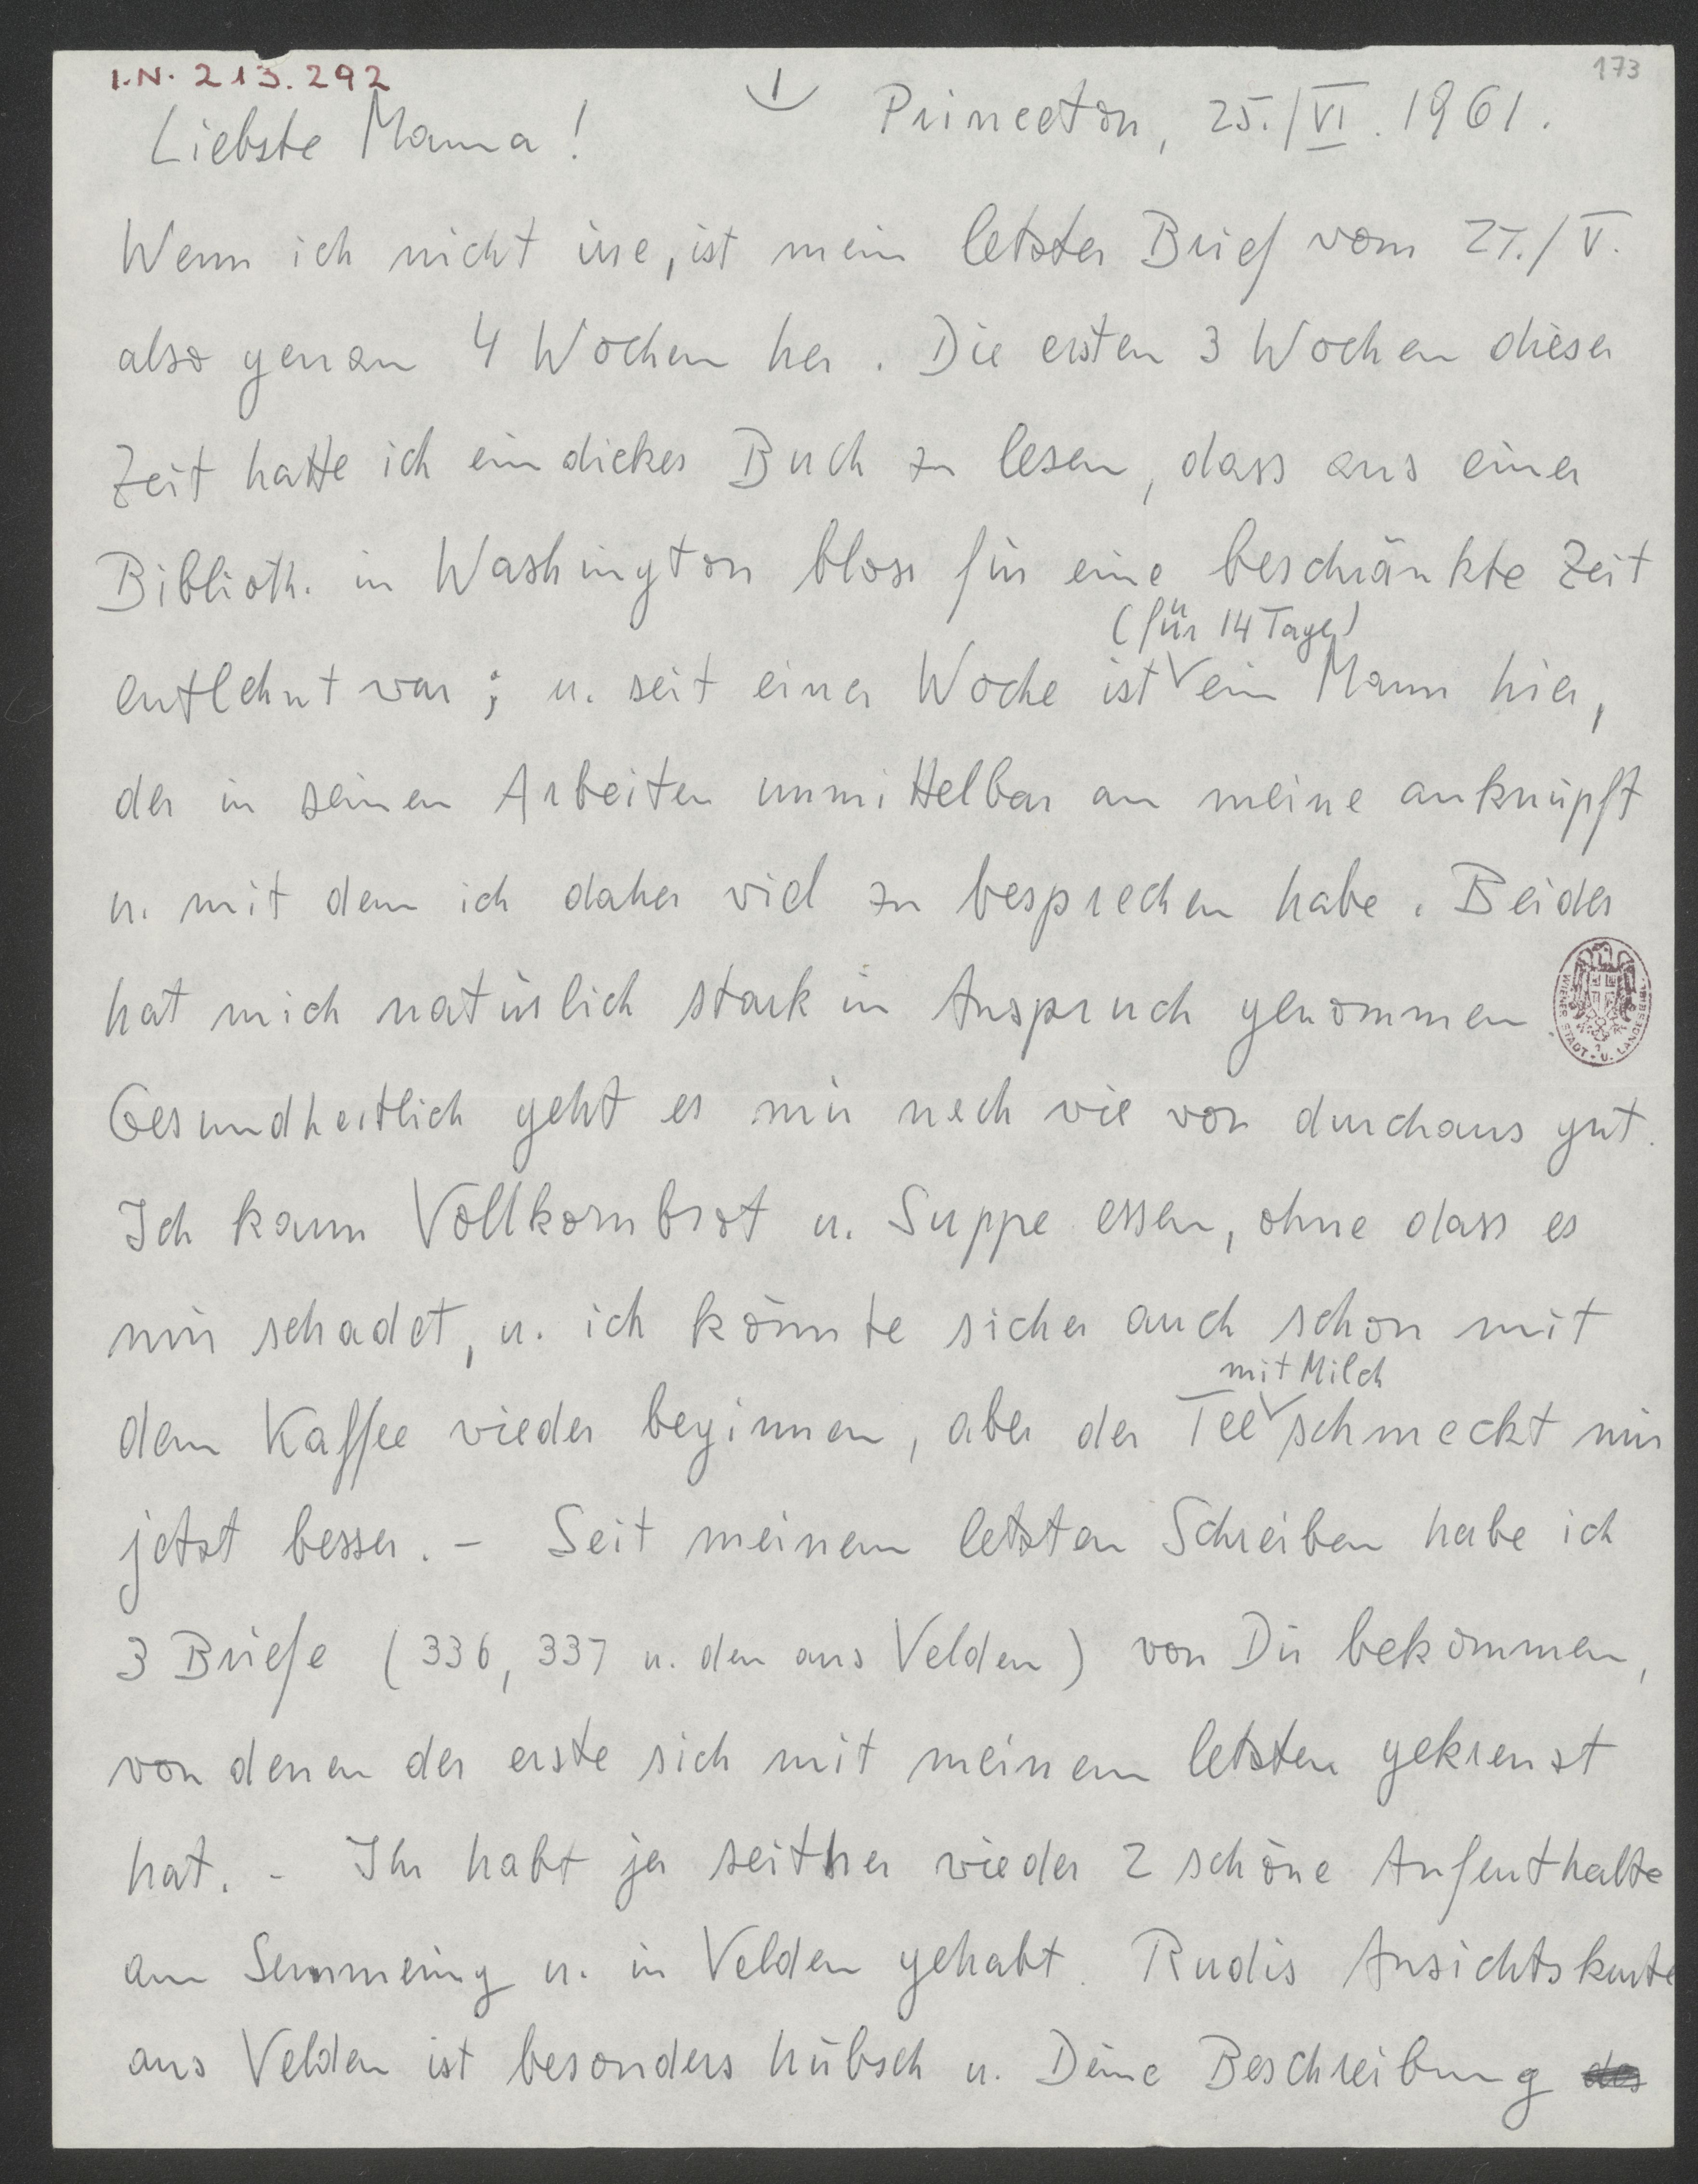 I.N. 213.292
173
1
Princeton, 25./VI. 1961.
Liebste Mama!
Wenn ich nicht irre, ist mein letzter Brief vom 27./V.
also genau 4 Wochen her. Die ersten 3 Wochen dieser
Zeit hatte ich ein dickes Buch zu lesen, dass aus einer
Biblioth. in Washington bloss für eine beschränkte Zeit
(für 14 Tage)
entlehnt war; u. seit einer Woche ist ein Mann hier,
der in seinen Arbeiten unmittelbar an meine anknüpft
u. mit dem ich daher viel zu besprechen habe. Beides
hat mich natürlich stark in Anspruch genommen
WIENER STADT- U. LANDESBIBL.
Gesundheitlich geht es mir nach wie vor durchaus gut.
Ich kann Vollkornbrot u. Suppe essen, ohne dass es
mir schadet, u. ich könnte sicher auch schon mit
mit Milch
dem Kaffee wieder beginnen, aber der Tee schmeckt mir
jetzt besser. – Seit meinem letzten Schreiben habe ich
3 Briefe (336, 337 u. den aus Velden) von Dir bekommen,
von denen der erste sich mit meinem letzten gekreuzt
hat. – Ihr habt ja seither wieder 2 schöne Aufenthalte
am Semmering u. in Velden gehabt. Rudis Ansichtskarte
aus Velden ist besonders hübsch u. Deine Beschreibung